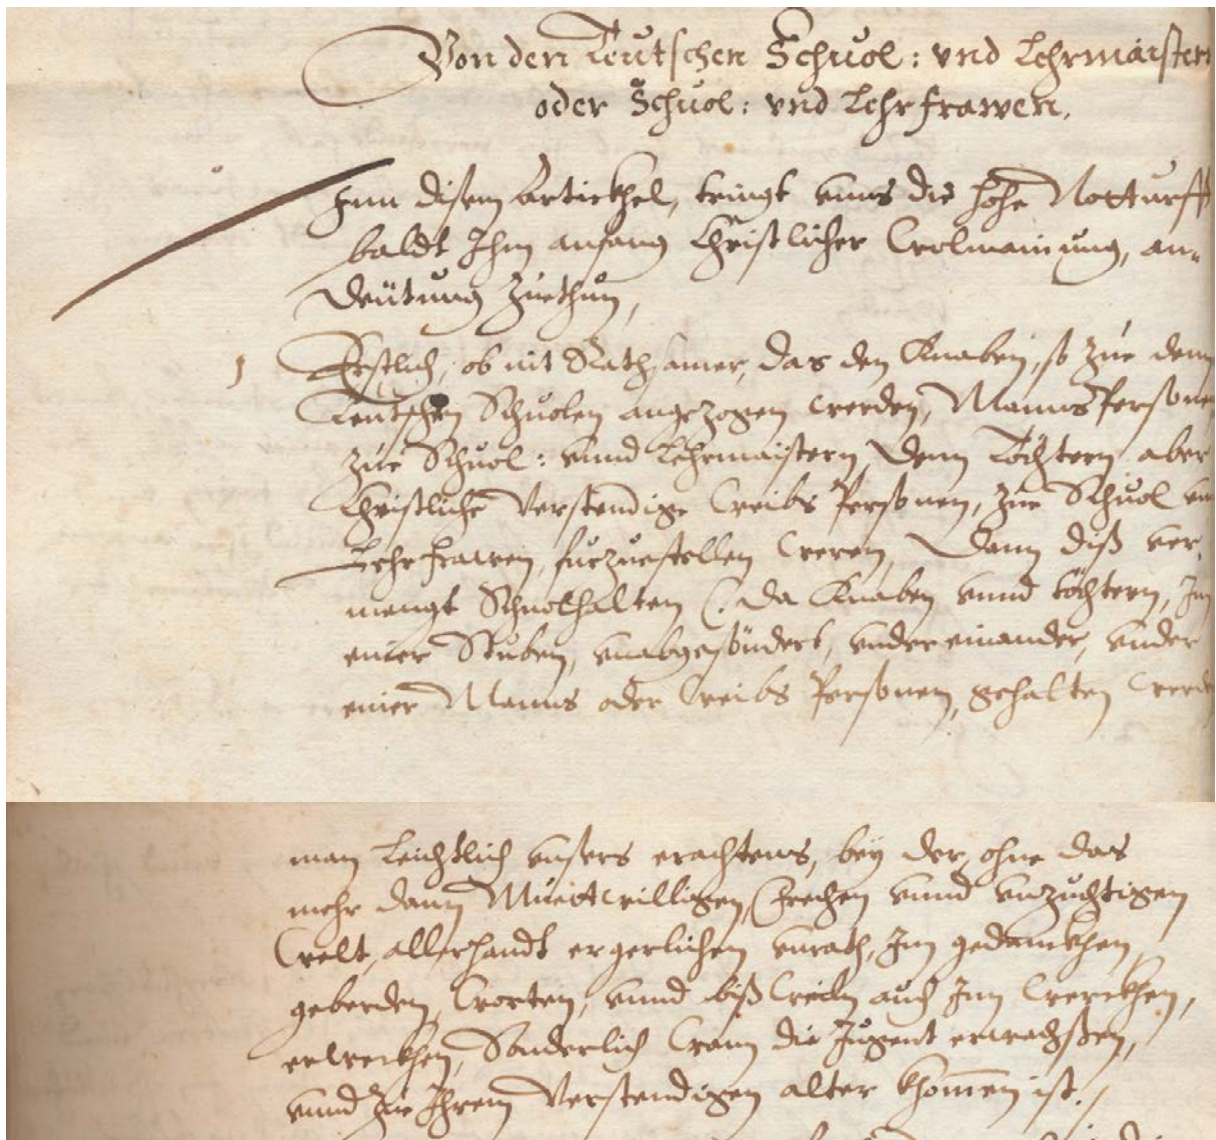 Von den Teutschen Schuol: vnd Lehrmaistern
oder Schuol: vnd Lehrfrawen.
Inn disem Artickhel, tringt vnns die hohe Notturfft
baldt Ihm anfang Christlicher Wolmainung, an¬
deütung Zuethun,
1 Erstlich, ob nit Rathsamer, das den Knaben, so zue denn
Teutschen Schuolen angezogen werden, Manns Personen
zue Schuol: vnnd Lehrmaistern, Denn Töchtern aber
Christliche Verstendige Weibs Personen, zue Schuol vnd
Lehrfrawen, furzuestellen weren, Dann diß ver¬
mengt Schuolhalten (: da Knaben vnnd töchtern, Inn
einer Stuben, vnabgesöndert, vndereinander, vnder
einer Manns oder Weibs Personen, gehalten werden
man Leichtlich vnsers erachtens, bey der, ohne das
mehr dann Muettwilligen, frechen vnnd vnzuchtigen
Welt, allerhandt ergerlichen vnrath, Inn gedanckhen,
geberden, Worten, vnnd biß Weiln auch Inn Werckhen,
erweckhen, Sonderlich Wann die Jugent erwachssen,
vnnd zue Ihrem Verstendigen alter khommen ist.